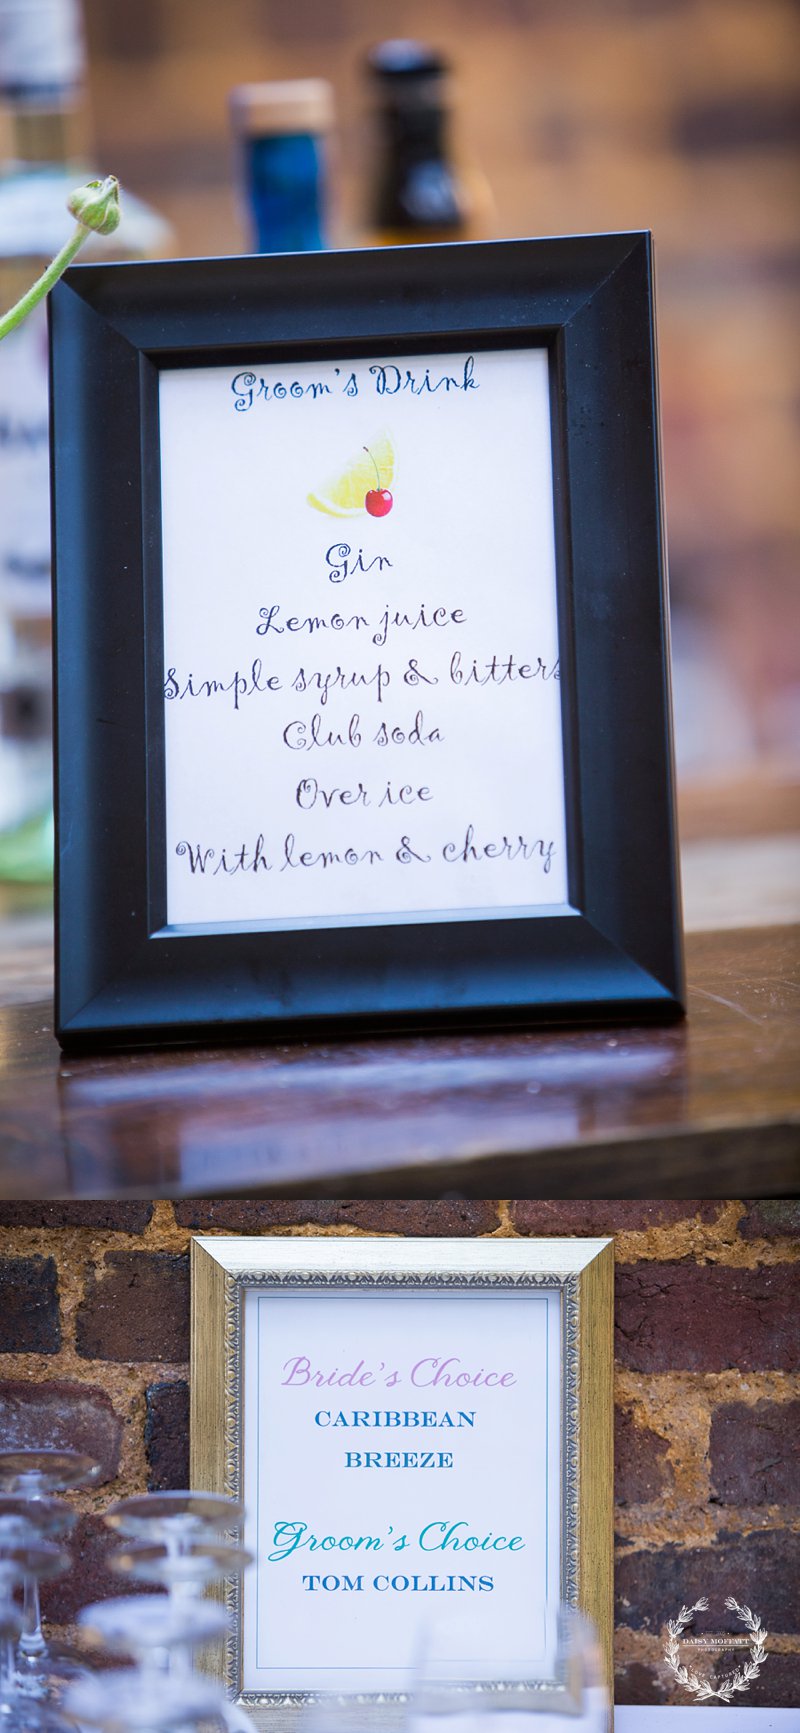 Groom's Drink
Gin
Lemon juice
Simple syrup & bitters
Club soda
Over ice
With lemon & cherry
Bride's Choice
CARIBBEAN
BREEZE
Groom's Choice
TOM COLLINS
DAISY MOFFATT
PHOTOGRAPHY